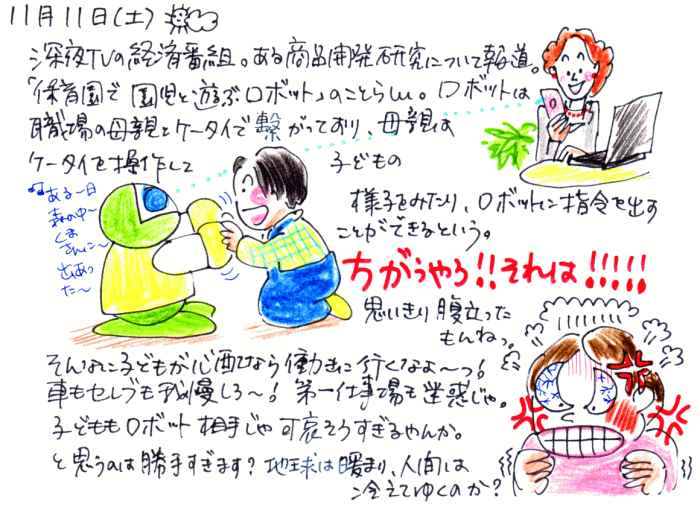 11月11日(土)
深夜TVの経済番組。ある商品開発研究について報道。
「保育園で園児と遊ぶロボット」のことらしい。ロボットは
職場の母親とケータイで繋がっており、母親は
ケータイを操作して 子どもの
様子をみたり、ロボットに指令を出す
ことができるという。
ある〜日
森の中〜
くま
さんに〜
出あっ
た〜
ちがうやろ!!それは!!!!!
思いきり腹立った
もんねっ。
そんなに子どもが心配なら働きに行くなよ〜っ!
車もセレブも我慢しろ〜! 第一仕事場も迷惑じゃ。
子どももロボット相手じゃ可哀そうすぎるやんか。
と思うのは勝手すぎます? 地球は暖まり、人間は
冷えてゆくのか?